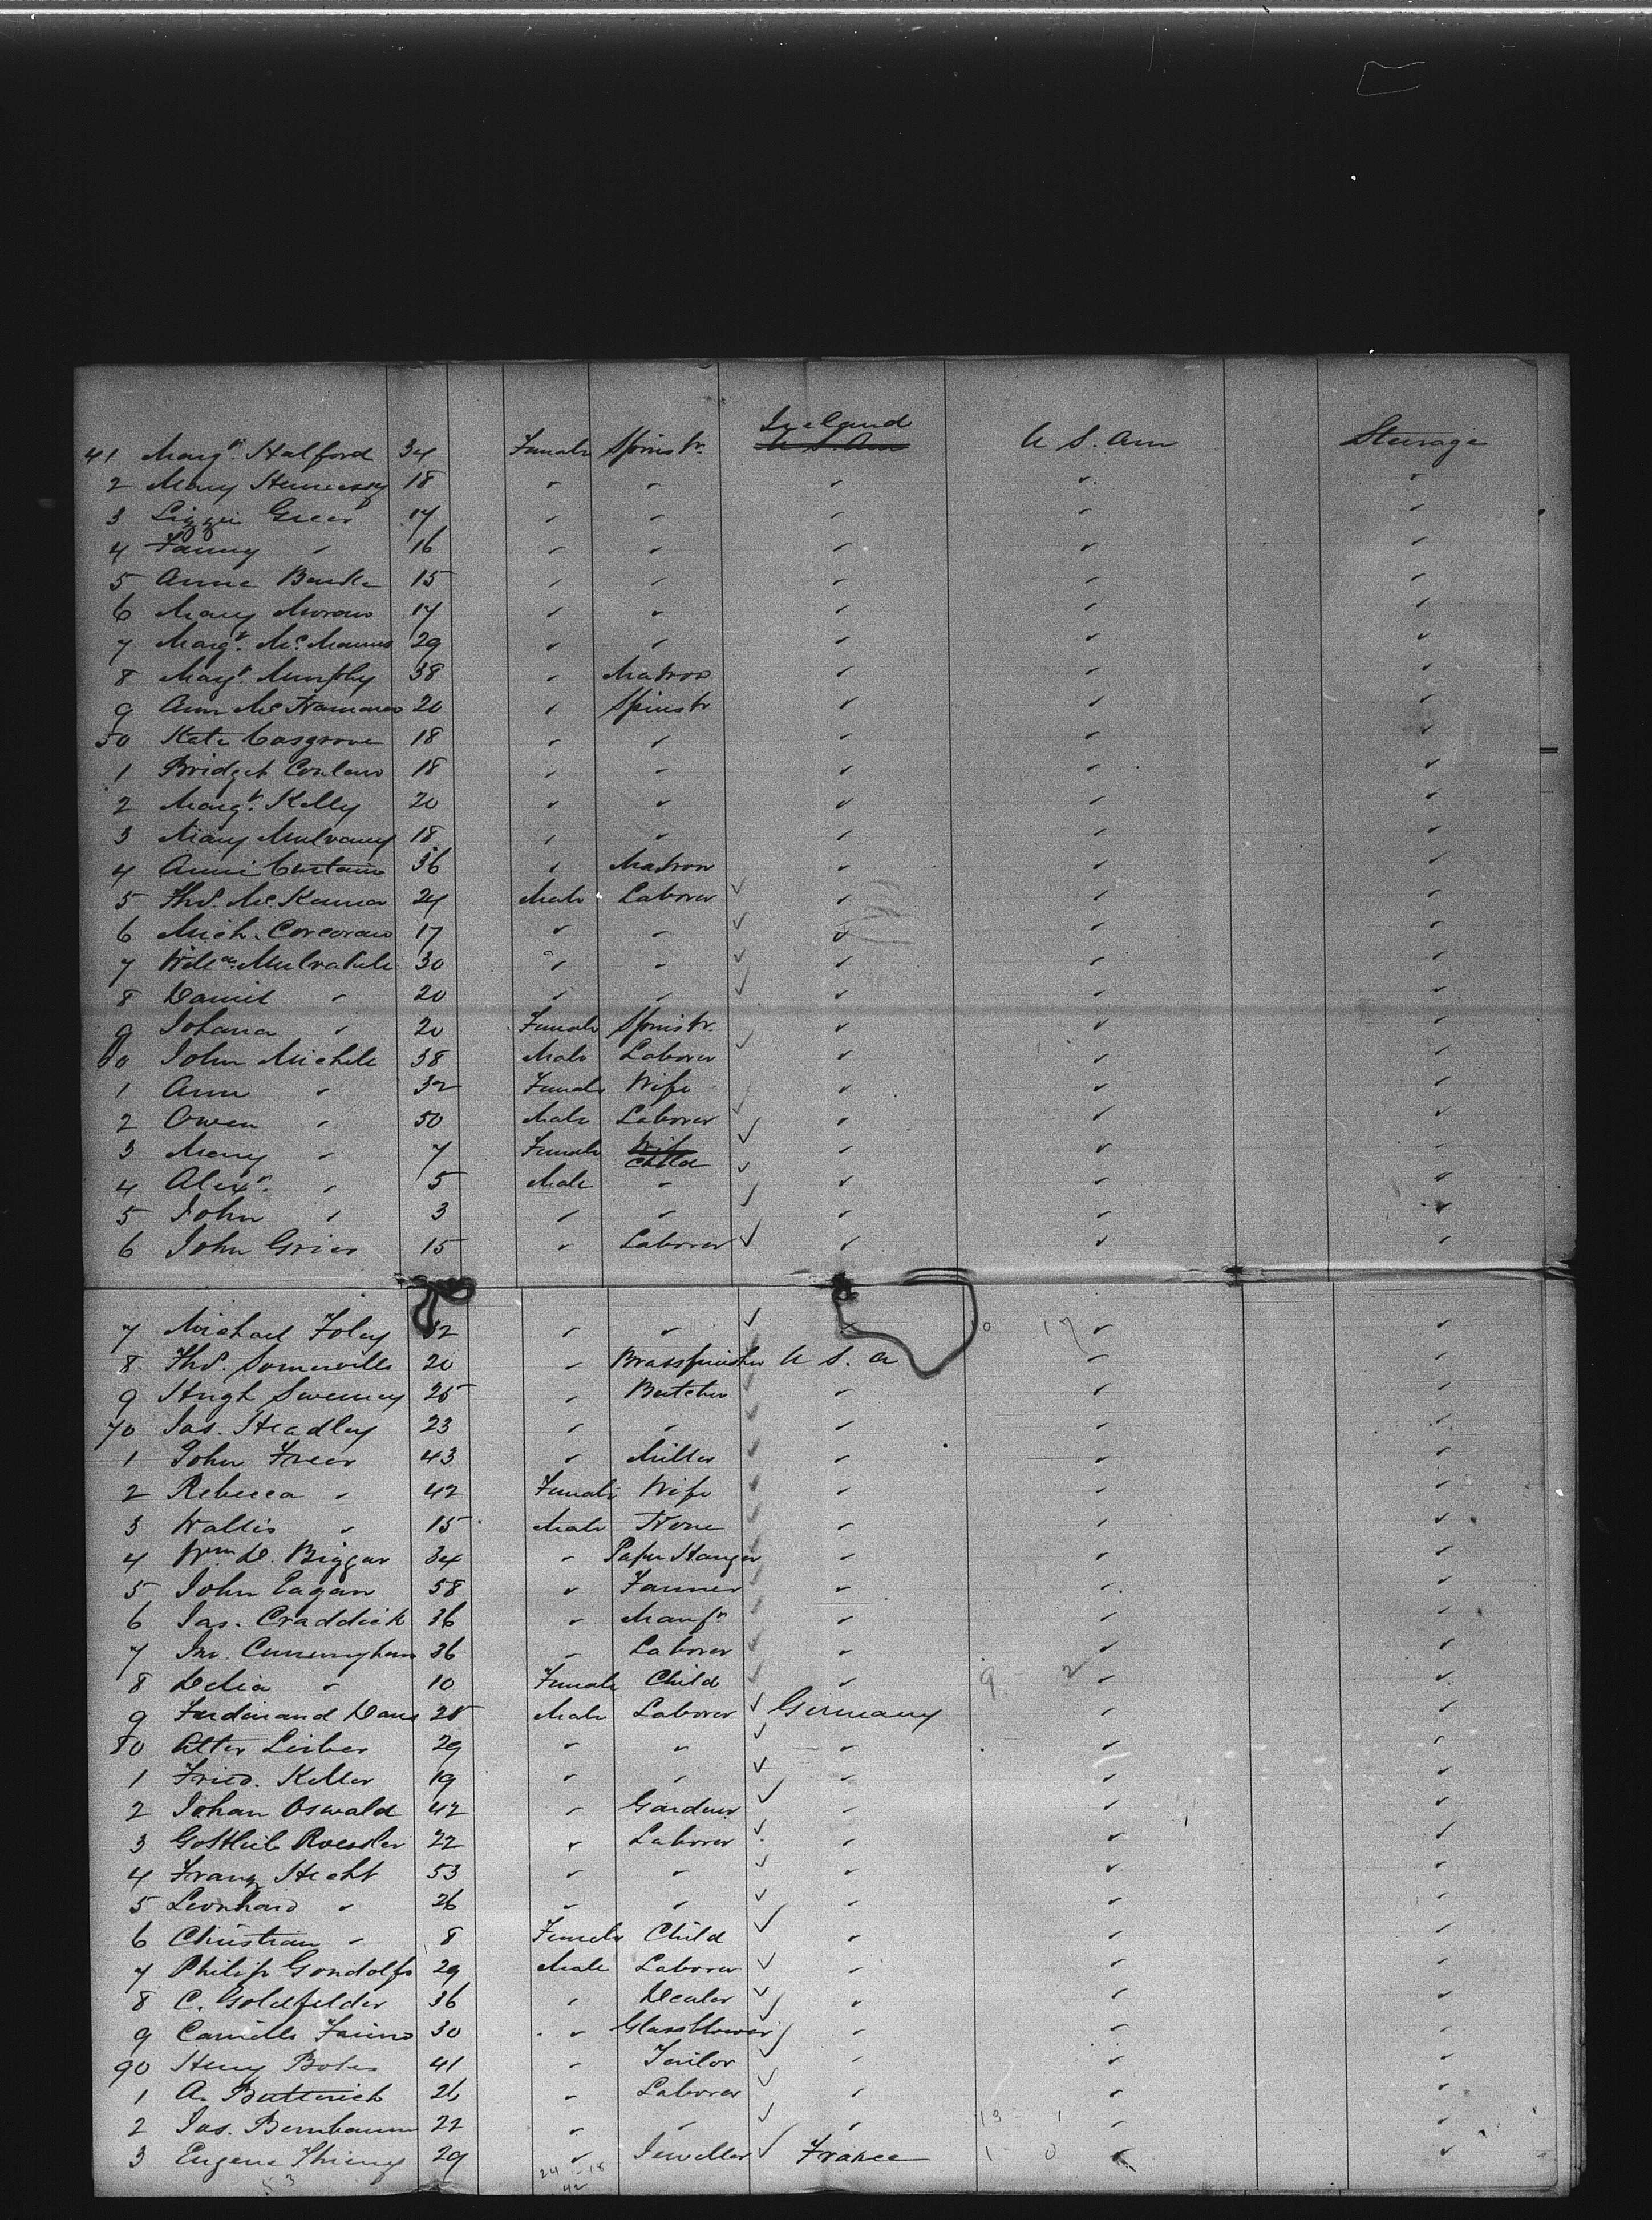 41 Margt. Halford 34 Female Spinstr. Ireland U.S. Am U.S. Am Steerage
2 Mary Hennessy 18 " " " " "
3 Lizzie Greer 17 " " " " "
4 Fanny " 16 " " " " "
5 Anne Banks 15 " " " " "
6 Mary Moran 17 " " " " "
7 Margt. McManus 29 " " " " "
8 Margt. Murphy 38 " Matron " " "
9 Ann McNamara 20 " Spinstr " " "
50 Kate Cosgrove 18 " " " " "
1 Bridget Conlan 18 " " " " "
2 Margt. Kelly 20 " " " " "
3 Mary Mulvany 18 " " " " "
4 Annie Curtain 36 " Matron " " "
5 Thos. McKenna 24 Male Laborer " " "
6 Mich. Corcoran 17 " " " " "
7 Willm. 30 " " " " "
8 Daniel " 20 " " " " "
9 Johana " 20 Female Spinstr. " " "
60 John Michele 38 Male Laborer " " "
1 Ann " 32 Female Wife " " "
2 Owen " 50 Male Laborer " " "
3 Mary " 7 Female Wife Child " " "
4 Alexr. " 5 Male " " " "
5 John " 3 " " " " "
6 John Grier 15 " Laborer " " "
7 Michael Foley 32 " " " 0 17 " "
8 Thos. Somerville 20 " Brassfinisher U.S. A " "
9 Hugh Sweeney 25 " Butcher " " "
70 Jas. Headley 23 " " " " "
1 John Freer 43 " Miller " " "
2 Rebecca " 42 Female Wife " " "
3 Wallis " 15 Male None " " "
4 Wm D. Biggar 34 " Paper Hanger " " "
5 John Eagan 58 " Farmer " " "
6 Jas. Craddick 36 " Manfr " " "
7 Jno. Cunningham 36 " Laborer " " "
8 Delia " 10 Female Child " 9 2 " "
9 Ferdinand Dans 28 Male Laborer Germany " "
80 Alter Leiber 29 " " " " "
1 Fried. Keller 19 " " " " "
2 Johan Oswald 42 " Gardner " " "
3 Gottlieb Roessler 22 " Laborer " " "
4 Franz Hecht 53 " " " " "
5 Leonhard " 26 " " " " "
6 Christian " 8 Female Child " " "
7 Philip Gondolfo 29 Male Laborer " " "
8 C. Goldfelder 36 " Dealer " " "
9 Camille 30 " Glassblower " " "
90 Henry 41 " Tailor " " "
1 A. Butterich 26 " Laborer " " "
2 Jas. Bernbaum 22 " " " 13 1 " "
3 Eugene Thiery 29 " Jeweller France 1 0 " "
53 24 - 18
42